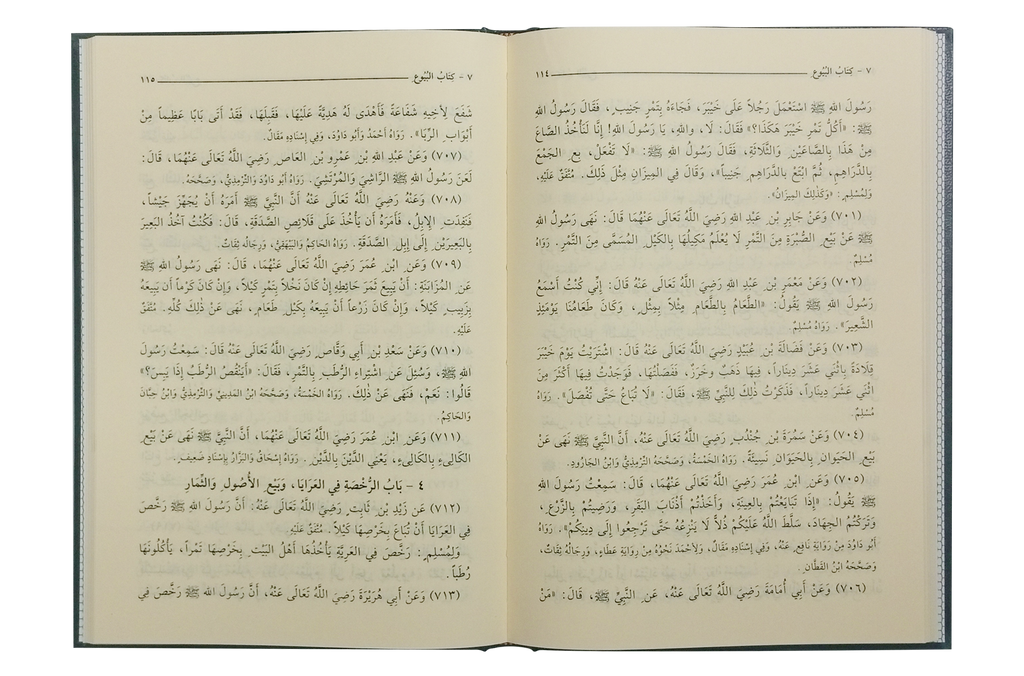 ٧ - كِتَابُ البُيُوعِ ١١٤
رَسُولَ اللهِ ﷺ اسْتَعْمَلَ رَجُلاً عَلَى خَيْبَرَ، فَجَاءَهُ بِتَمْرٍ جَنِيبٍ، فَقَالَ رَسُولُ اللهِ
ﷺ: «أَكُلُّ تَمْرِ خَيْبَرَ هَكَذَا؟» فَقَالَ: لَا، واللهِ، يَا رَسُولَ اللهِ! إِنَّا لَنَأْخُذُ الصَّاعَ
مِنْ هَذَا بِالصَّاعَيْنِ وَالثَّلَاثَةِ، فَقَالَ رَسُولُ اللهِ ﷺ: «لَا تَفْعَلْ، بِعِ الجَمْعَ
بِالدَّرَاهِمِ، ثُمَّ ابْتَعْ بِالدَّرَاهِمِ جَنِيباً»، وَقَالَ فِي المِيزَانِ مِثْلَ ذَلِكَ. مُتَّفَقٌ عَلَيْهِ،
وَلِمُسْلِمٍ: «وَكَذَلِكَ المِيزَانُ».
(٧٠١) وَعَنْ جَابِرِ بْنِ عَبْدِ اللهِ رَضِيَ اللَّهُ تَعَالَى عَنْهُمَا قَالَ: نَهَى رَسُولُ اللهِ
ﷺ عَنْ بَيْعِ الصُّبْرَةِ مِنَ التَّمْرِ لَا يُعْلَمُ مَكِيلُهَا بِالكَيْلِ المُسَمَّى مِنَ التَّمْرِ. رَوَاهُ
مُسْلِمٌ.
(٧٠٢) وَعَنْ مَعْمَرِ بْنِ عَبْدِ اللهِ رَضِيَ اللَّهُ تَعَالَى عَنْهُ قَالَ: إِنِّي كُنْتُ أَسْمَعُ
رَسُولَ اللهِ ﷺ يَقُولُ: «الطَّعَامُ بِالطَّعَامِ مِثْلاً بِمِثْلٍ، وَكَانَ طَعَامُنَا يَوْمَئِذٍ
الشَّعِيرَ». رَوَاهُ مُسْلِمٌ.
(٧٠٣) وَعَنْ فَضَالَةَ بْنِ عُبَيْدٍ رَضِيَ اللَّهُ تَعَالَى عَنْهُ قَالَ: اشْتَرَيْتُ يَوْمَ خَيْبَرَ
قِلَادَةً بِاثْنَيْ عَشَرَ دِينَاراً، فِيهَا ذَهَبٌ وَخَرَزٌ، فَفَصَلْتُهَا، فَوَجَدْتُ فِيهَا أَكْثَرَ مِنَ
اثْنَيْ عَشَرَ دِينَاراً، فَذَكَرْتُ ذَلِكَ لِلنَّبِيِّ ﷺ، فَقَالَ: «لَا تُبَاعُ حَتَّى تُفْصَلَ». رَوَاهُ
مُسْلِمٌ.
(٧٠٤) وَعَنْ سَمُرَةَ بْنِ جُنْدُبٍ رَضِيَ اللَّهُ تَعَالَى عَنْهُ، أَنَّ النَّبِيَّ ﷺ نَهَى عَنْ
بَيْعِ الحَيَوَانِ بِالحَيَوَانِ نَسِيئَةً. رَوَاهُ الخَمْسَةُ، وَصَحَّحَهُ التِّرْمِذِيُّ وَابْنُ الجَارُودِ.
(٧٠٥) وَعَنِ ابْنِ عُمَرَ رَضِيَ اللَّهُ تَعَالَى عَنْهُمَا، قَالَ: سَمِعْتُ رَسُولَ اللهِ
ﷺ يَقُولُ: «إِذَا تَبَايَعْتُمْ بِالعِينَةِ، وَأَخَذْتُمْ أَذْنَابَ البَقَرِ، وَرَضِيتُمْ بِالزَّرْعِ،
وَتَرَكْتُمُ الجِهَادَ، سَلَّطَ اللَّهُ عَلَيْكُمْ ذُلاًّ لَا يَنْزِعُهُ حَتَّى تَرْجِعُوا إِلَى دِينِكُمْ». رَوَاهُ
أَبُو دَاوُدَ مِنْ رِوَايَةِ نَافِعٍ عَنْهُ، وَفِي إِسْنَادِهِ مَقَالٌ، وَلِأَحْمَدَ نَحْوُهُ مِنْ رِوَايَةِ عَطَاءٍ، وَرِجَالُهُ ثِقَاتٌ،
وَصَحَّحَهُ ابْنُ القَطَّانِ.
(٧٠٦) وَعَنْ أَبِي أُمَامَةَ رَضِيَ اللَّهُ تَعَالَى عَنْهُ، عَنِ النَّبِيِّ ﷺ، قَالَ: «مَنْ
٧ - كِتَابُ البُيُوعِ ١١٥
شَفَعَ لِأَخِيهِ شَفَاعَةً فَأَهْدَى لَهُ هَدِيَّةً عَلَيْهَا، فَقَبِلَهَا، فَقَدْ أَتَى بَابًا عَظِيماً مِنْ
أَبْوَابِ الرِّبَا». رَوَاهُ أَحْمَدُ وَأَبُو دَاوُدَ، وَفِي إِسْنَادِهِ مَقَالٌ.
(٧٠٧) وَعَنْ عَبْدِ اللهِ بْنِ عَمْرِو بْنِ العَاصِ رَضِيَ اللَّهُ تَعَالَى عَنْهُمَا، قَالَ:
لَعَنَ رَسُولُ اللهِ ﷺ الرَّاشِيَ وَالمُرْتَشِيَ. رَوَاهُ أَبُو دَاوُدَ وَالتِّرْمِذِيُّ، وَصَحَّحَهُ.
(٧٠٨) وَعَنْهُ رَضِيَ اللَّهُ تَعَالَى عَنْهُ أَنَّ النَّبِيَّ ﷺ أَمَرَهُ أَنْ يُجَهِّزَ جَيْشاً،
فَنَفِدَتِ الإِبِلُ، فَأَمَرَهُ أَنْ يَأْخُذَ عَلَى قَلَائِصِ الصَّدَقَةِ، قَالَ: فَكُنْتُ آخُذُ البَعِيرَ
بِالبَعِيرَيْنِ إِلَى إِبِلِ الصَّدَقَةِ. رَوَاهُ الحَاكِمُ وَالبَيْهَقِيُّ، وَرِجَالُهُ ثِقَاتٌ.
(٧٠٩) وَعَنِ ابْنِ عُمَرَ رَضِيَ اللَّهُ تَعَالَى عَنْهُمَا، قَالَ: نَهَى رَسُولُ اللهِ ﷺ
عَنِ المُزَابَنَةِ: أَنْ يَبِيعَ ثَمَرَ حَائِطِهِ إِنْ كَانَ نَخْلاً بِتَمْرٍ كَيْلاً، وَإِنْ كَانَ كَرْماً أَن يَبِيعَهُ
بِزَبِيبٍ كَيْلاً، وَإِنْ كَانَ زَرْعاً أَنْ يَبِيعَهُ بِكَيْلِ طَعَامٍ، نَهَى عَنْ ذَلِكَ كُلِّهِ. مُتَّفَقٌ
عَلَيْهِ.
(٧١٠) وَعَنْ سَعْدِ بْنِ أَبِي وَقَّاصٍ رَضِيَ اللَّهُ تَعَالَى عَنْهُ قَالَ: سَمِعْتُ رَسُولَ
اللهِ ﷺ، وَسُئِلَ عَنِ اشْتِرَاءِ الرُّطَبِ بِالتَّمْرِ، فَقَالَ: «أَيَنْقُصُ الرُّطَبُ إِذَا يَبِسَ؟»
قَالُوا: نَعَمْ، فَنَهَى عَنْ ذَلِكَ. رَوَاهُ الخَمْسَةُ، وَصَحَّحَهُ ابْنُ المَدِينِيِّ وَالتِّرْمِذِيُّ وَابْنُ حِبَّانَ
وَالحَاكِمُ.
(٧١١) وَعَنِ ابْنِ عُمَرَ رَضِيَ اللَّهُ تَعَالَى عَنْهُمَا، أَنَّ النَّبِيَّ ﷺ نَهَى عَنْ بَيْعِ
الكَالِىءِ بِالكَالِىءِ، يَعْنِي الدَّيْنَ بِالدَّيْنِ. رَوَاهُ إِسْحَاقُ وَالبَزَّارُ بِإِسْنَادٍ ضَعِيفٍ.
٤ - بَابُ الرُّخْصَةِ فِي العَرَايَا، وَبَيْعِ الأُصُولِ وَالثِّمَارِ
(٧١٢) عَنْ زَيْدِ بْنِ ثَابِتٍ رَضِيَ اللَّهُ تَعَالَى عَنْهُ: أَنَّ رَسُولَ اللهِ ﷺ رَخَّصَ
فِي العَرَايَا أَنْ تُبَاعَ بِخَرْصِهَا كَيْلاً. مُتَّفَقٌ عَلَيْهِ.
وَلِمُسْلِمٍ: رَخَّصَ فِي العَرِيَّةِ يَأْخُذُهَا أَهْلُ البَيْتِ بِخَرْصِهَا تَمْراً، يَأْكُلُونَهَا
رُطَباً.
(٧١٣) وَعَنْ أَبِي هُرَيْرَةَ رَضِيَ اللَّهُ تَعَالَى عَنْهُ، أَنَّ رَسُولَ اللهِ ﷺ رَخَّصَ فِي